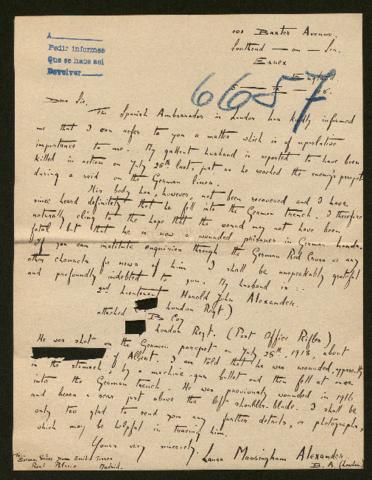 A
Pedir informes
Que se haga así
Devolver
6657
Baxter Avenue,
Southend — on — Sea,
Essex
England.
Dear Sir,
The Spanish Ambassador in London has kindly informed
me that I can refer to you a matter which is of
importance to me. My gallant husband is reported to have been
killed in action on July 25th last, just as he reached the enemy's parapet
during a raid on the German lines.
His body has, however, not been recovered and I have
since heard definitely that he fell into the German trench. I therefore
naturally cling to the hope that the wound may not have been
fatal but that he is now a wounded prisoner in German hands.
If you can institute enquiries through the German Red Cross or any
other channels for news of him I shall be unspeakably grateful
and profoundly indebted to you. My husband is:
2nd Lieutenant Harold John Alexander.
attached London Regt.)
B Coy
London Regt. (Post Office Rifles)
He was shot on the German parapet on July 25th, 1918, about
of Albert. I am told that he was wounded, apparently
in the stomach by a machine-gun bullet and then fell at once
into the German trench. He was previously wounded in 1916
and bears a scar just above the left shoulder-blade. I shall be
only too glad to send you any further details, or photographs,
which may be helpful in tracing him.
Yours very sincerely,
Laura Massingham Alexander.
B.A. (London)
Real Palacio Madrid.